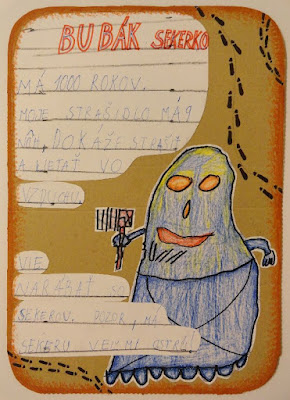 BUBÁK SEKERKO
MÁ 1000 ROKOV.
MOJE STRAŠIDLO MÁ 9
NÔH, DOKÁŽE STRAŠIŤ
A LIETAŤ VO
VZDUCHU.
VIE
NARÁBAŤ SO
SEKEROU. POZOR, MÁ
SEKERU VEĽMI OSTRÚ!